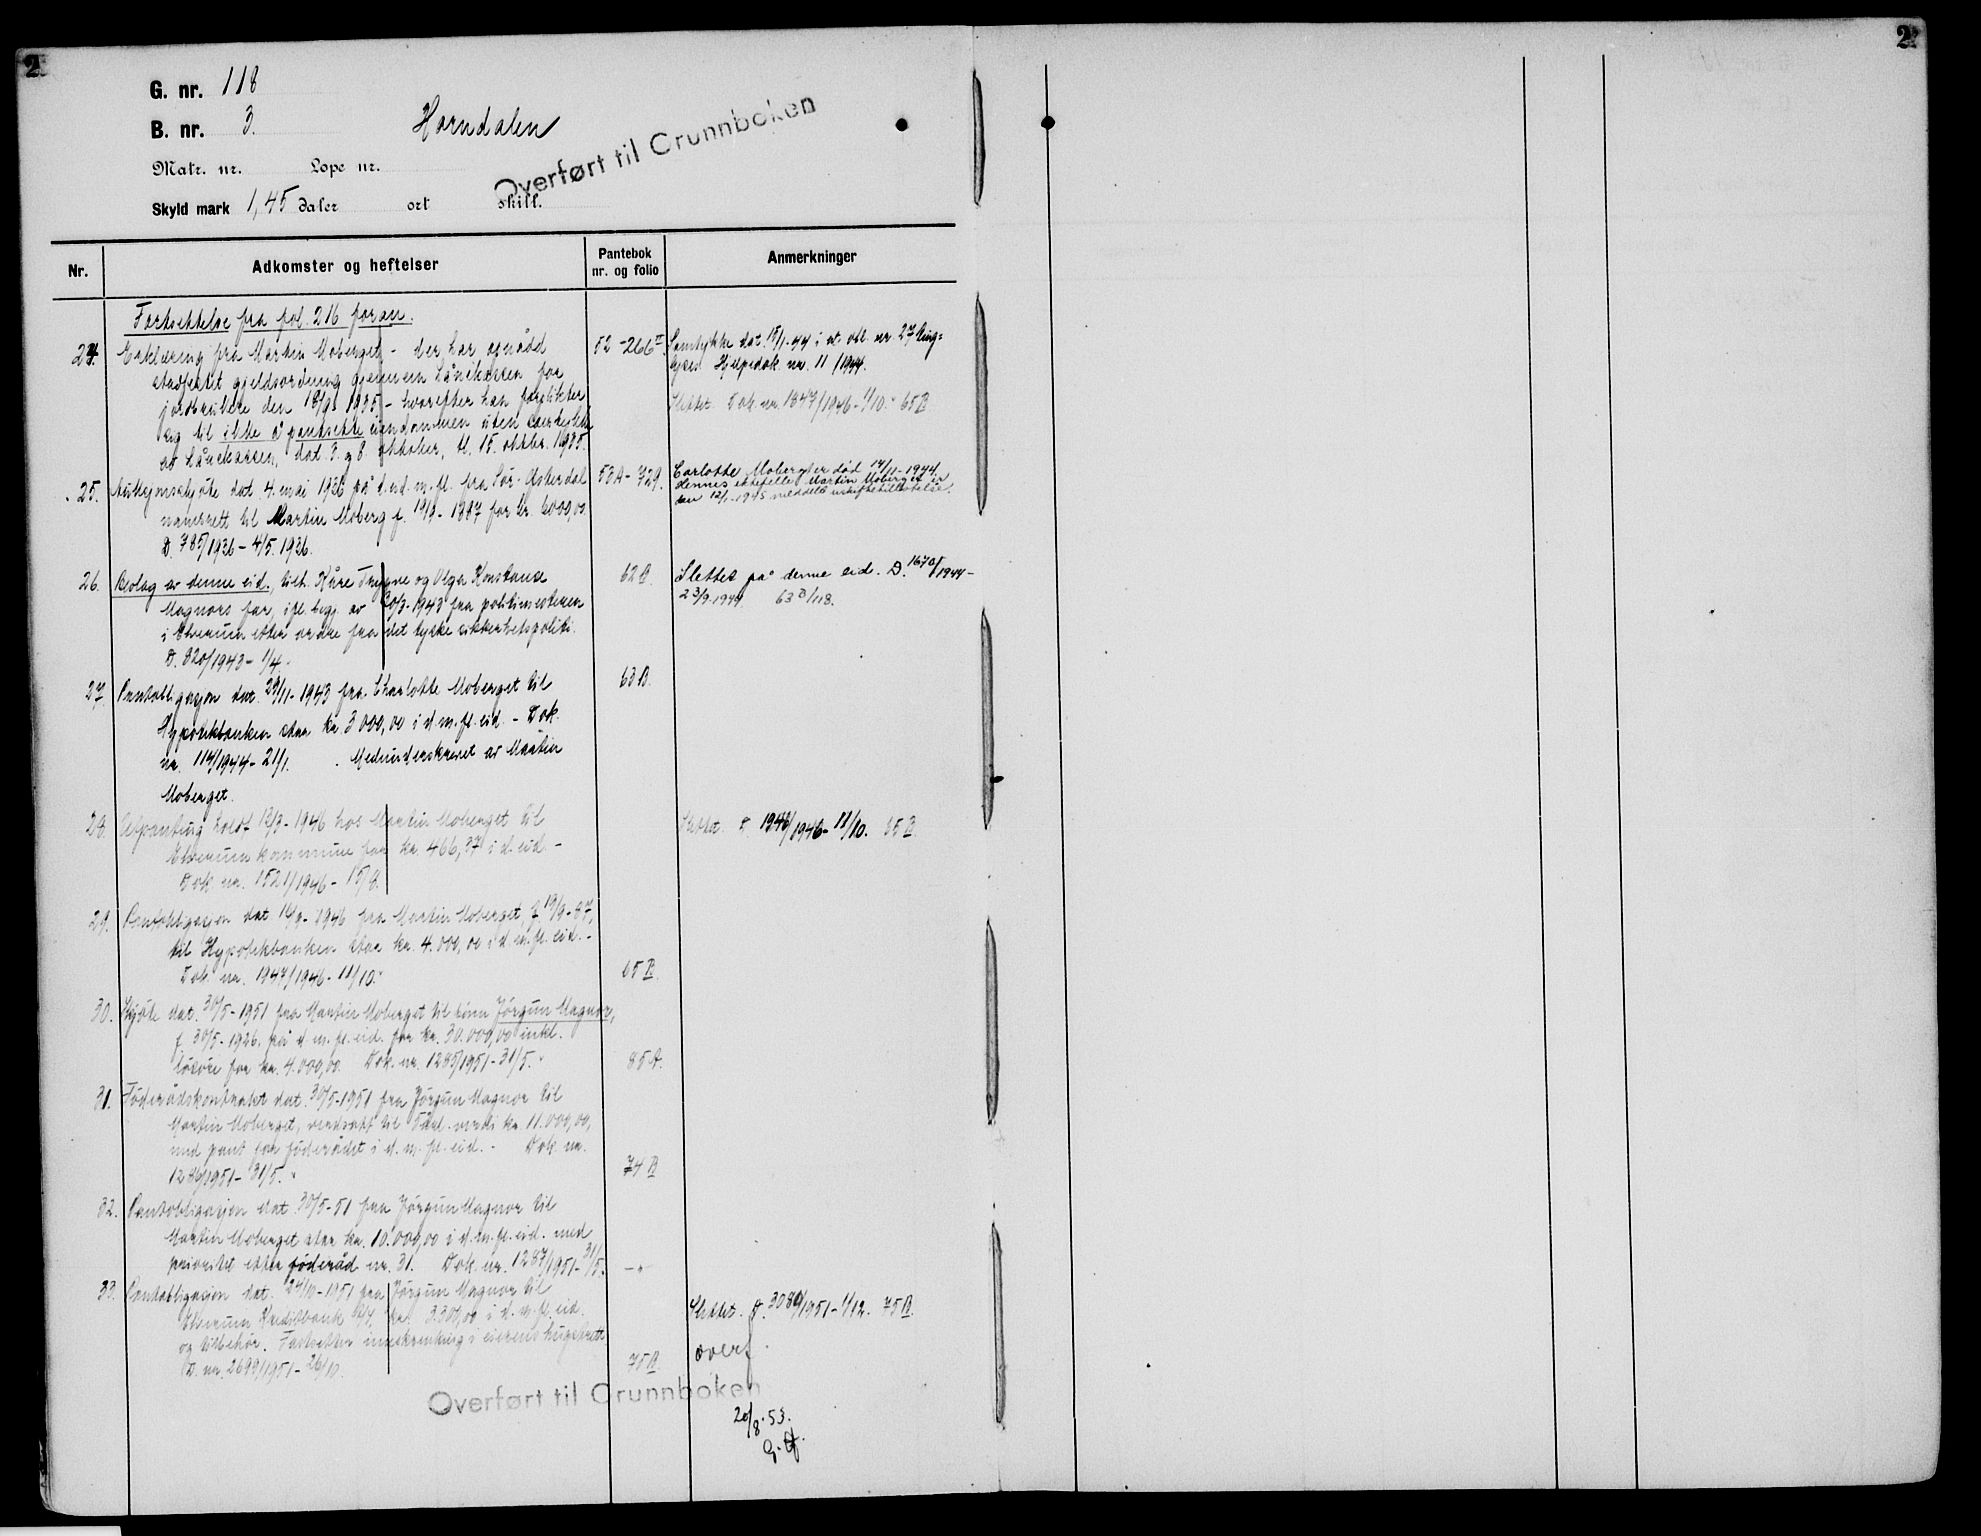 2
2
G. nr. 118
B. nr. 3. Horndalen
Overført til Grunnboken
Matr. nr. Løpe nr.
Skyld mark 1,45 daler ort skill.
Nr. Adkomster og heftelser Pantebok nr. og folio Anmerkninger
Fortsettelse fra fol. 216 foran.
24. Erklæring fra Martin Moberget - der har opnådd 52-266 II
stadfestet gjeldsordning gjennem Lånekassen for
jordbrukere den 18/9 1935 - hvorefter han forplikter
sig til ikke å pantsette eiendommen uten samtykke
av Lånekassen, dat. 3. og 8. oktober, tl. 15. oktbr. 1935.
Samtykke dat. 15/1-44 i at obl. nr. 27 ting-
lyses. Hjelpedok. nr. 11/1944.
Slettet. Dok. nr. 1847/1946 - 11/10. 65 B
25. Auksjonsskjøte dat. 4. mai 1926 på d. eid. m. fl. fra Sør-Østerdal 53 A - 729.
namsrett til Martin Moberg f. 19/9-1887 for kr. 6000,00.
D. 785/1936 - 4/5. 1936.
Carlotte Moberget er død 14/11-1944.
dennes ektefelle Martin Moberget er
den 12/1-1945 meddelt uskiftebevilling.
26. Beslag av denne eid. tilh. Kåre Trygve og Olga Konstanse 62 B.
Magnors far, ifl. begj. av 30/3-1943 fra politimesteren
i Elverum etter ordre fra det tyske sikkerhetspoliti.
D. 820/1943 - 1/4.
Slettes på denne eid. D. 1670/1944 -
23/9-1944. 63 B/118.
27. Pantobligasjon dat. 29/11-1943 fra Charlotte Moberget til 63 B.
Hypotekbanken stor kr. 3000,00 i d. m. fl. eid. - Dok.
nr. 114/1944 - 21/1. Medunderskrevet av Martin
Moberget.
28. Utpanting holdt 12/3-1946 hos Martin Moberget til
Elverum kommune for kr. 466,37 i d. eid. -
Dok. nr. 1521/1946 - 15/8.
Slettet. D. 1946/1946 - 11/10. 65 B.
29. Pantobligasjon dat. 14/9-1946 fra Martin Moberget, f. 19/9-87,
til Hypotekbanken stor kr. 4.000,00 i d. m. fl. eid. -
Dok. nr. 1947/1946 - 11/10. 65 B.
30. Skjøte dat. 30/5-1951 fra Martin Moberget til sønn Jørgun Magnor,
f. 30/5-1926. på d. m. fl. eid. for kr. 30.000,00 inkl.
løsøre for kr. 4.000,00. Dok. nr. 1285/1951 - 31/5. 85 A.
31. Føderådskontrakt dat. 30/5-1951 fra Jørgun Magnor til
Martin Moberget, verdsatt til 5 årl. verdi kr. 11.000,00,
med pant for føderådet i d. m. fl. eid. - Dok. nr.
1286/1951 - 31/5. 74 B
32. Pantobligasjon dat. 30/5-51 fra Jørgun Magnor til
Martin Moberget stor kr. 10.000,00 i d. m. fl. eid. med
prioritet etter føderåd nr. 31. Dok. nr. 1287/1951 - 31/5. -"-
33. Pantobligasjon dat. 24/10-1951 fra Jørgun Magnor til
Elverum Kreditbank A/S, kr. 3300,00 i d. m. fl. eid.
og tilbehør. Fastsetter innskrenking i eierens hugstrett
D. nr. 2699/1951 - 26/10. 75 B.
Slettet. D. 3080/1951 - 1/12. 75 B.
overf.
Overført til Grunnboken
20/8.53.